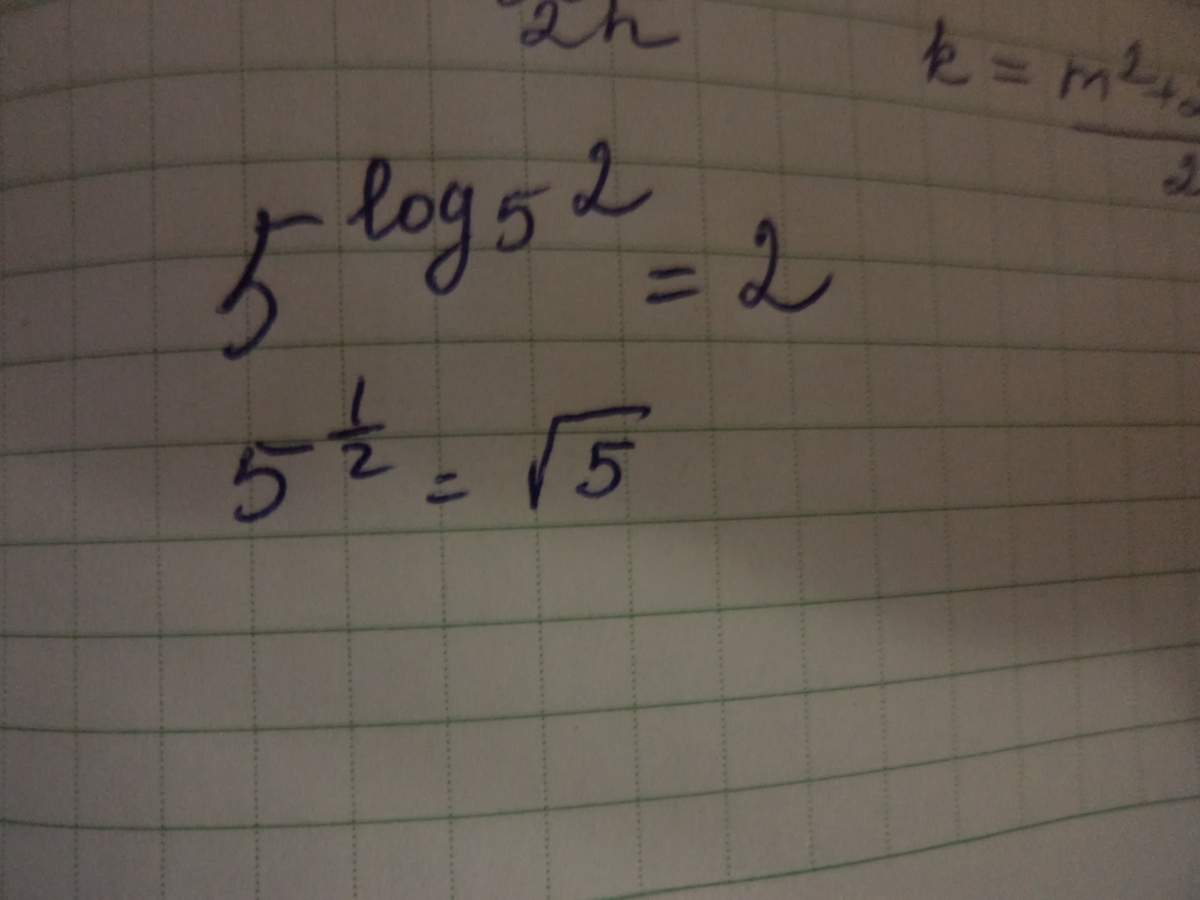 2h
k = m²+
2
5^{log₅ 2} = 2
5^{1/2} = √5